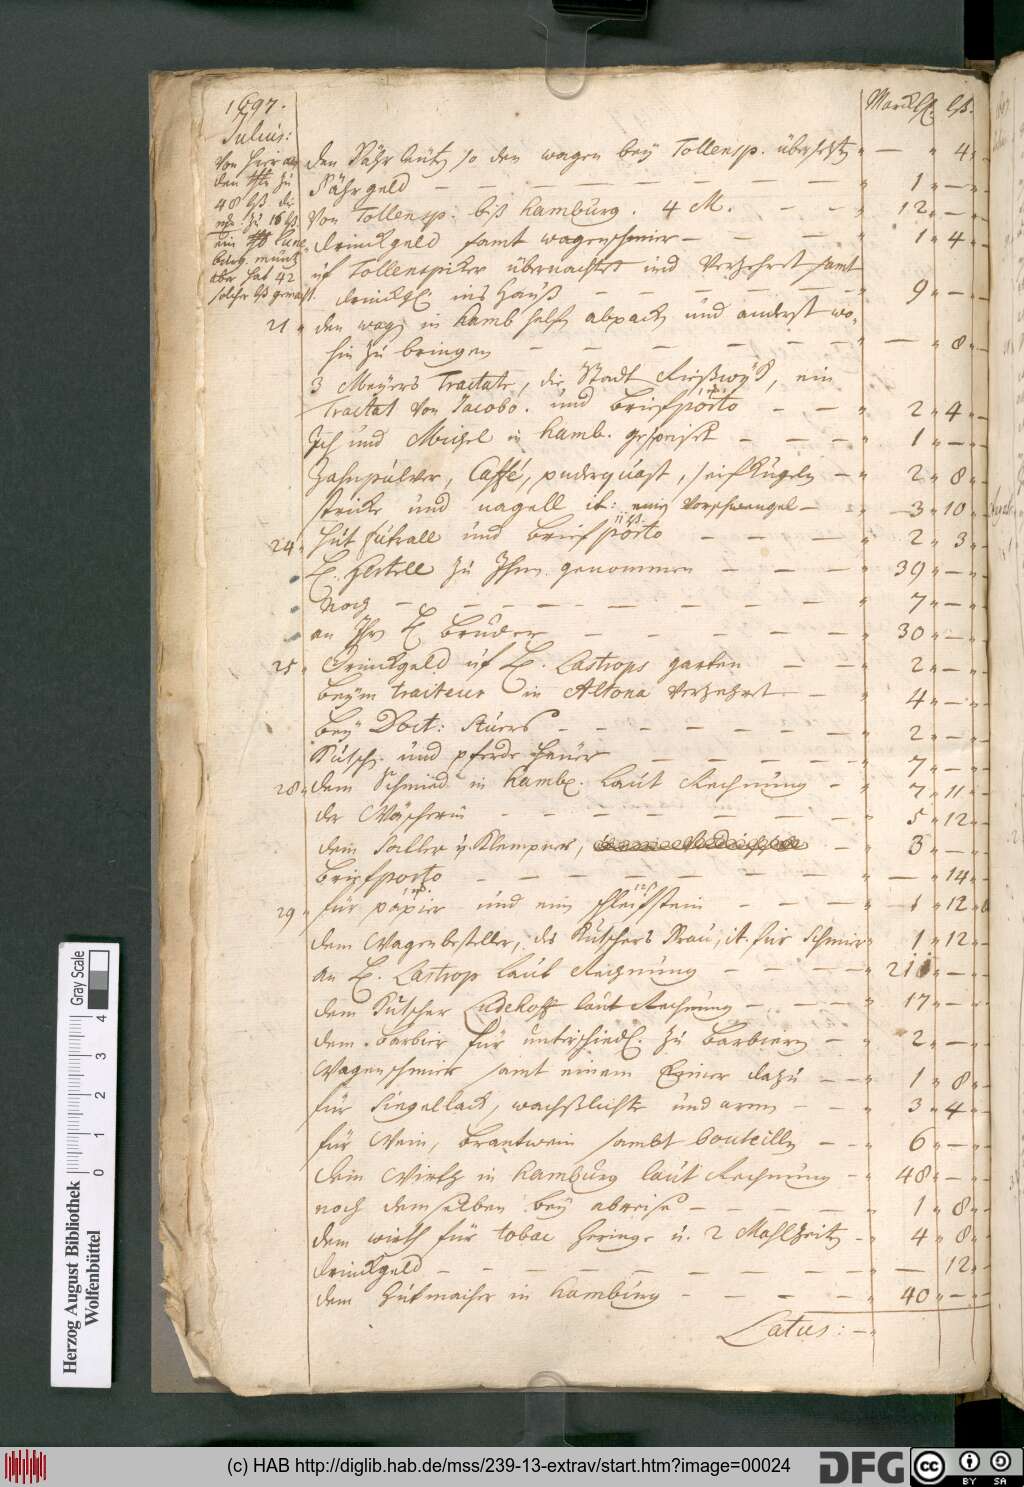 1697.
Julius:
Marck lß.
von hier an
den zu
48 lß die
zu 16 lß
ein Lune
burg. müntz
aber hat 42
solche lß gemacht.
den Fährleüt so den wagen bey Tollensp. übersetzt — 4
Fährgeld — 1 —
Von Tollensp. biß Hamburg. 4 M. — 12 —
drinckgeld samt wagenschmier — 1 4
uf Tollenspiker übernachtet und Verzehret samt
drinckg. ins Hauß — 9 —
21 den wag in Hamb helf abpack und anderst wo-
hin zu bringen — 8
3 Meyers Tractate, die Stadt Rißwyk, ein
Tractat von Jacobo. und briefporto — 2 4
Ich und Michel in Hamb. gespeiset — 1 —
Zahnpulver, Caffé, puderquast, seifkugeln — 2 8
stricke und nagell it: einig Vorschwengel — 3 10
11 lß.
24 hut futrall und briefporto — 2 3
H. Hertell zu Ihm genommen — 39 —
Noch — 7 —
an Ihr H Bruder — 30 —
25 Trinckgeld uf H. Lastrops garten — 2 —
beym traiteur in Altona Verzehret — 4 —
bey Doct: Stuers — 2 —
Kutsch. und pferde heuer — 7 —
28 dem Schmied in Hamb. laut Rechnung — 7 11
der Wäscherin — 5 12
dem Satler u. Klempner, — 3 —
briefporto — 14
12 ß
29 für papier und ein schleifstein — 1 12
dem Wagenbesteller, des Kutschers Frau, it. für Schmier 1 12
an H. Lastrop laut Rechnung — 21 —
dem Kutscher Ludehoff laut Rechnung — 17 —
dem Barbier für unterschiedl. zu barbiern — 2 —
Wagenschmier samt einem Eimer dazu — 1 8
für Siegellack, wachßlichte und — 3 4
für Wein, brantwein sambt bouteilln — 6 —
dem Wirth in Hamburg laut Rechnung — 48 —
noch demselben bey abreise — 1 8
dem wirth für tobac heringe u. 2 Mahlzeit — 4 8
drinckgeld — 12
dem Hutmacher in Hamburg — 40 —
Latus: —
Herzog August Bibliothek
Wolfenbüttel
0 1 2 3 4
Gray Scale
(c) HAB http://diglib.hab.de/mss/239-13-extrav/start.htm?image=00024
DFG
cc BY SA